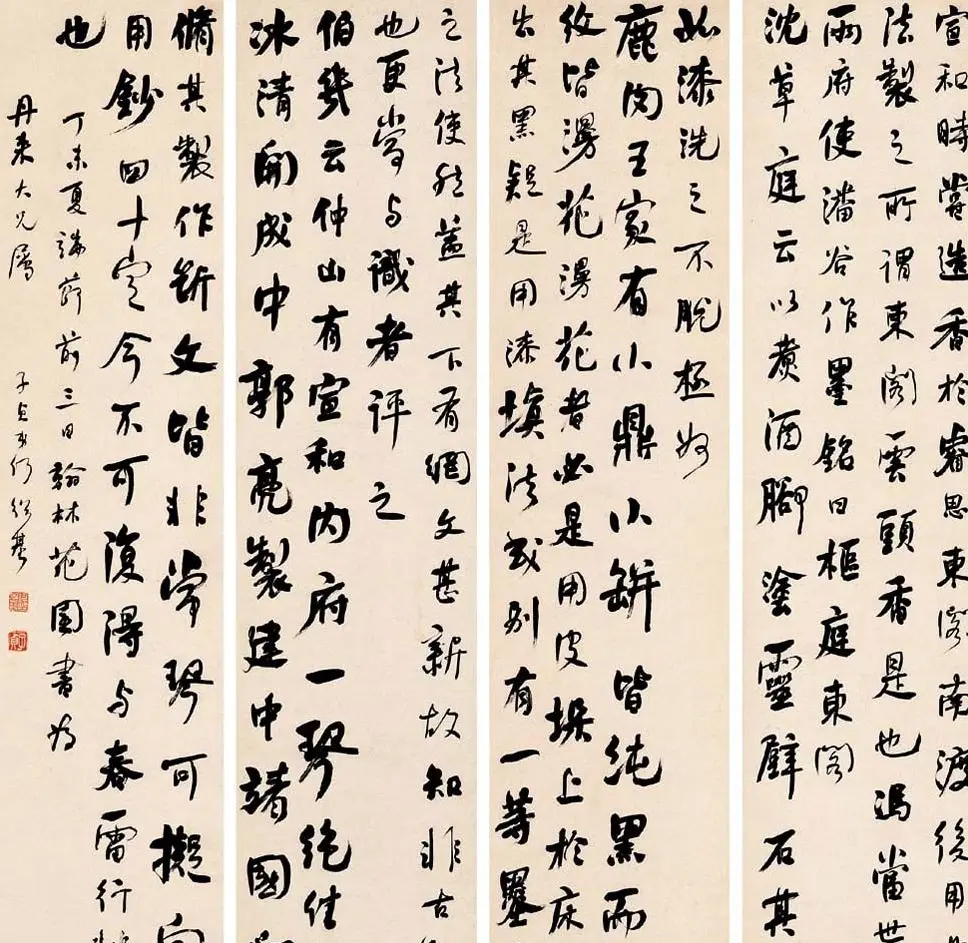 宣和時嘗造香於睿思東閣南渡後用
法製之所謂東閣雲頭香是也馮當世
兩府使潘谷作墨銘曰樞庭東閣
沈草庭云以煮酒腳塗靈壁石其
如漆洗之不脫極好
鹿肉王家有小鼎小缾皆純黑而
紋皆漫花漫花者必是用皮垛上於床
出其黑疑是用漆填法或別有一等墨
之法使然蓋其下有網文甚新故知非古
也更當與識者評之
伯幾云仲山有宣和內府一琴絕佳
冰清開成中郭亮製建中靖國
脩其製作斷文皆非常琴可擬
用鈔四十定今不可復得與春雷行
也
丁未夏 前三日翰林花園書為
丹來大兄屬
子貞弟何紹基